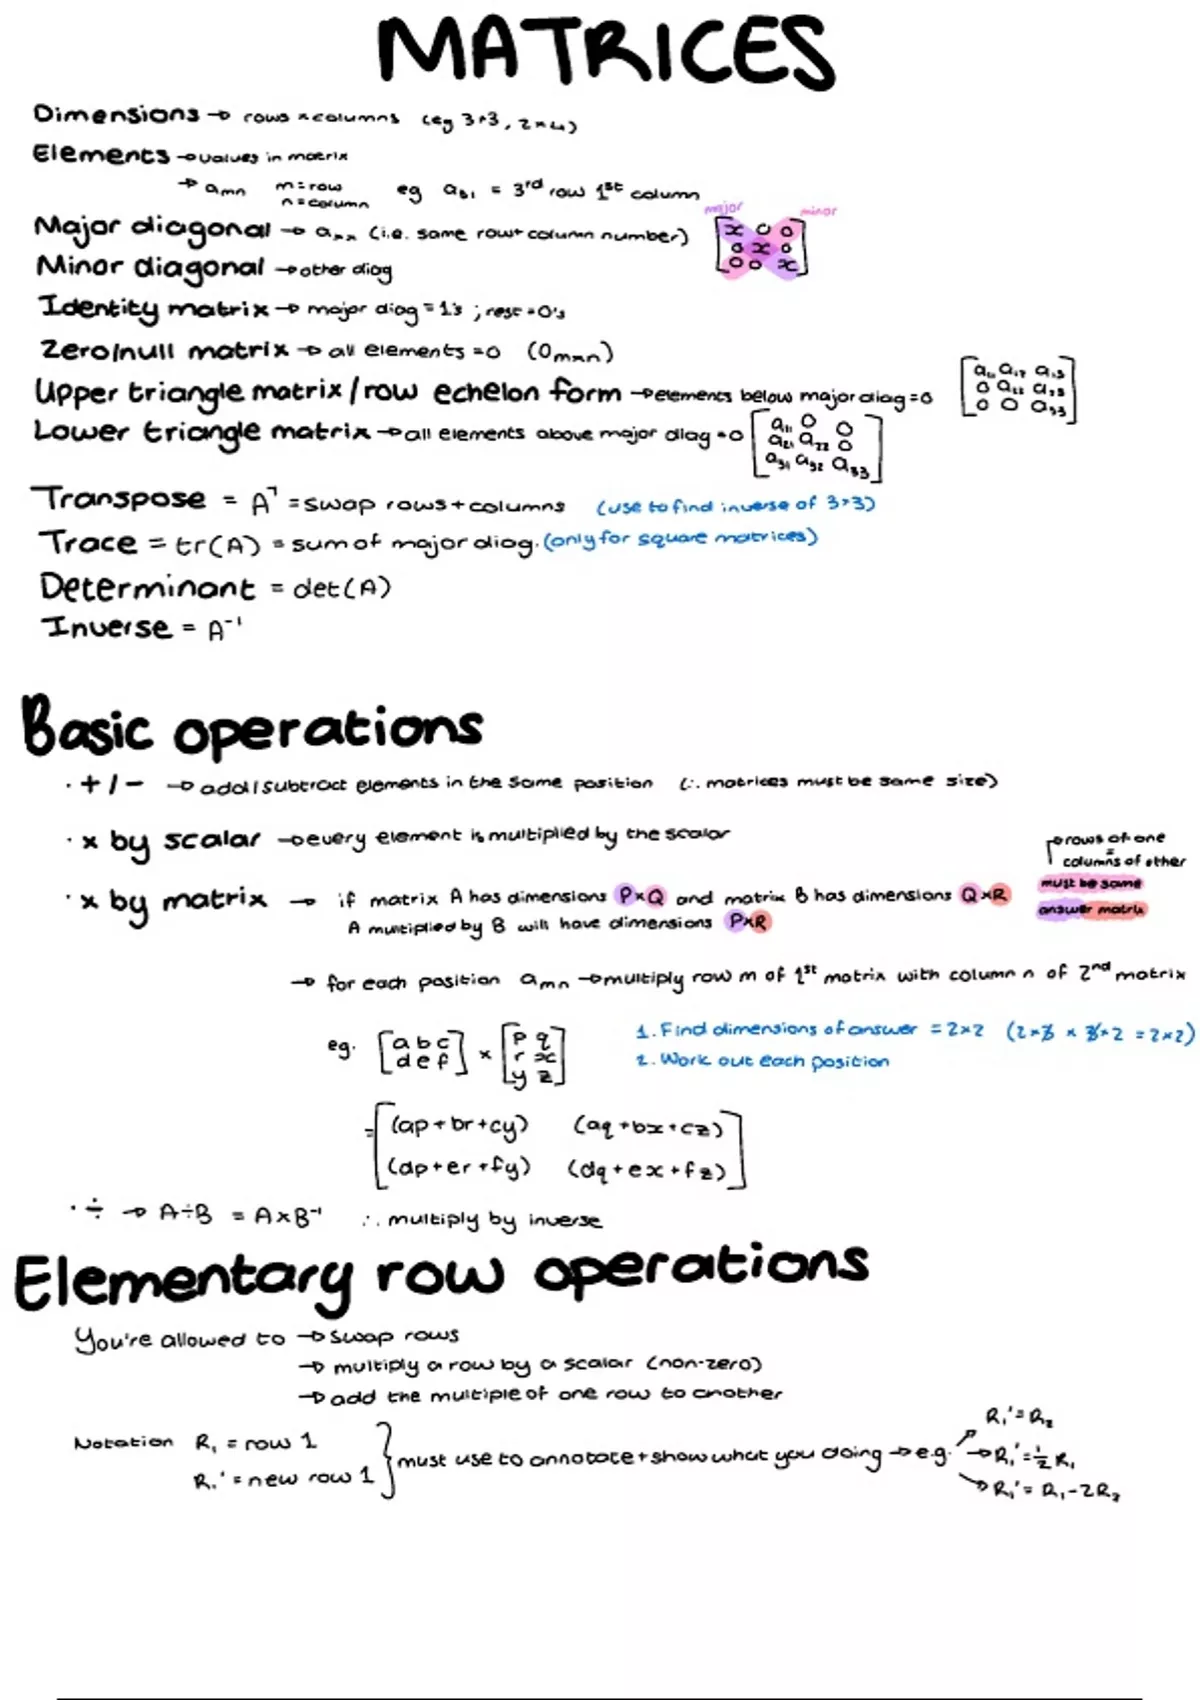 MATRICES
Dimensions → rows × columns (eg 3×3, 2×4)
Elements → values in matrix
→ aₘₙ m = row n = column eg a₃₁ = 3rd row 1st column
Major diagonal → aₓₓ (i.e. same row + column number)
major minor
[x 0 0
0 x 0
0 0 x]
Minor diagonal → other diag
Identity matrix → major diag = 1's ; rest = 0's
Zero/null matrix → all elements = 0 (0ₘₓₙ)
Upper triangle matrix / row echelon form → elements below major diag = 0
[a₁₁ a₁₂ a₁₃
0 a₂₂ a₂₃
0 0 a₃₃]
Lower triangle matrix → all elements above major diag = 0
[a₁₁ 0 0
a₂₁ a₂₂ 0
a₃₁ a₃₂ a₃₃]
Transpose = Aᵀ = swap rows + columns (use to find inverse of 3×3)
Trace = tr(A) = sum of major diag. (only for square matrices)
Determinant = det(A)
Inverse = A⁻¹
Basic operations
· + / − → add / subtract elements in the same position (∴ matrices must be same size)
· × by scalar → every element is multiplied by the scalar
· × by matrix → if matrix A has dimensions P×Q and matrix B has dimensions Q×R
A multiplied by B will have dimensions P×R
→ rows of one
=
columns of other
must be same
answer matrix
→ for each position aₘₙ → multiply row m of 1st matrix with column n of 2nd matrix
eg. [a b c
d e f] × [p q
r x
y z]
1. Find dimensions of answer = 2×2 (2×3 × 3×2 = 2×2)
2. Work out each position
= [(ap + br + cy) (aq + bx + cz)
(dp + er + fy) (dq + ex + fz)]
· ÷ → A÷B = A×B⁻¹ ∴ multiply by inverse
Elementary row operations
You're allowed to → swap rows
→ multiply a row by a scalar (non-zero)
→ add the multiple of one row to another
Notation R₁ = row 1
R₁' = new row 1
} must use to annotate + show what you doing → e.g.
R₁' = R₂
→ R₁' = ½ R₁
→ R₁' = R₁ − 2R₂